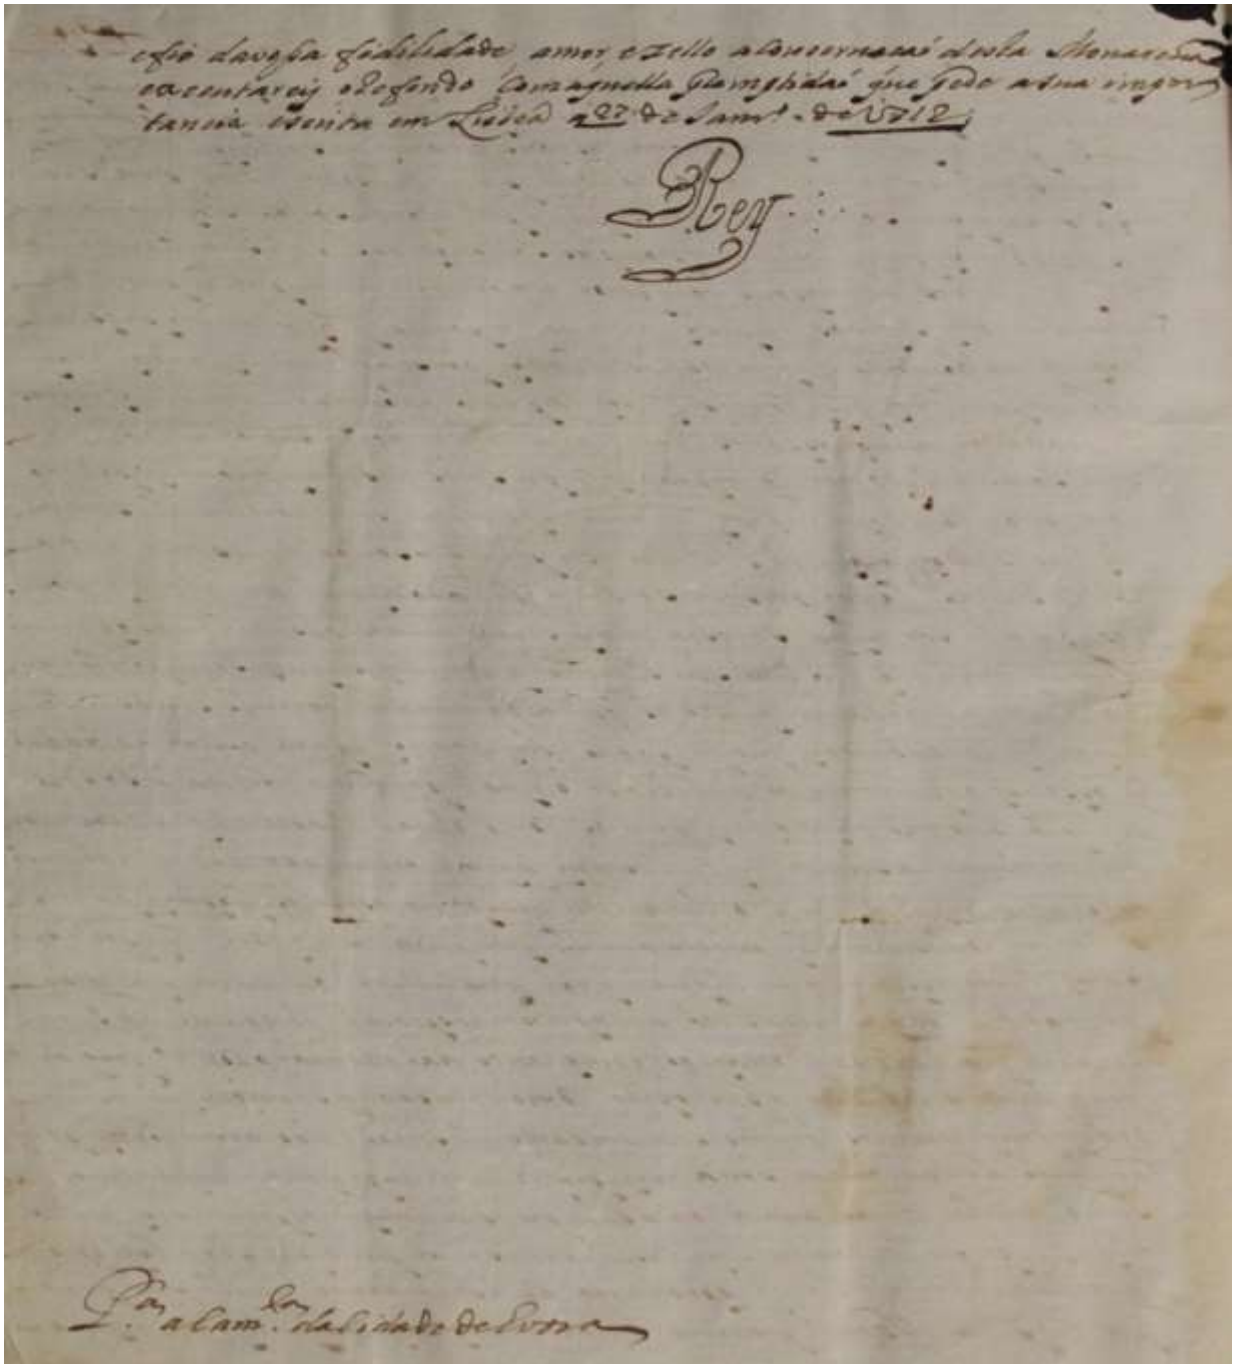 e fio da vossa fidilidade amor, e zello a conservacaõ desta Monarchia
executareis o referido com aquella promptidaõ que pede a sua impor
tancia escrita em Lisboa a 27 de Janr.º de 1712
Rey
P.ª a Cam.ra da Cidade de Evora